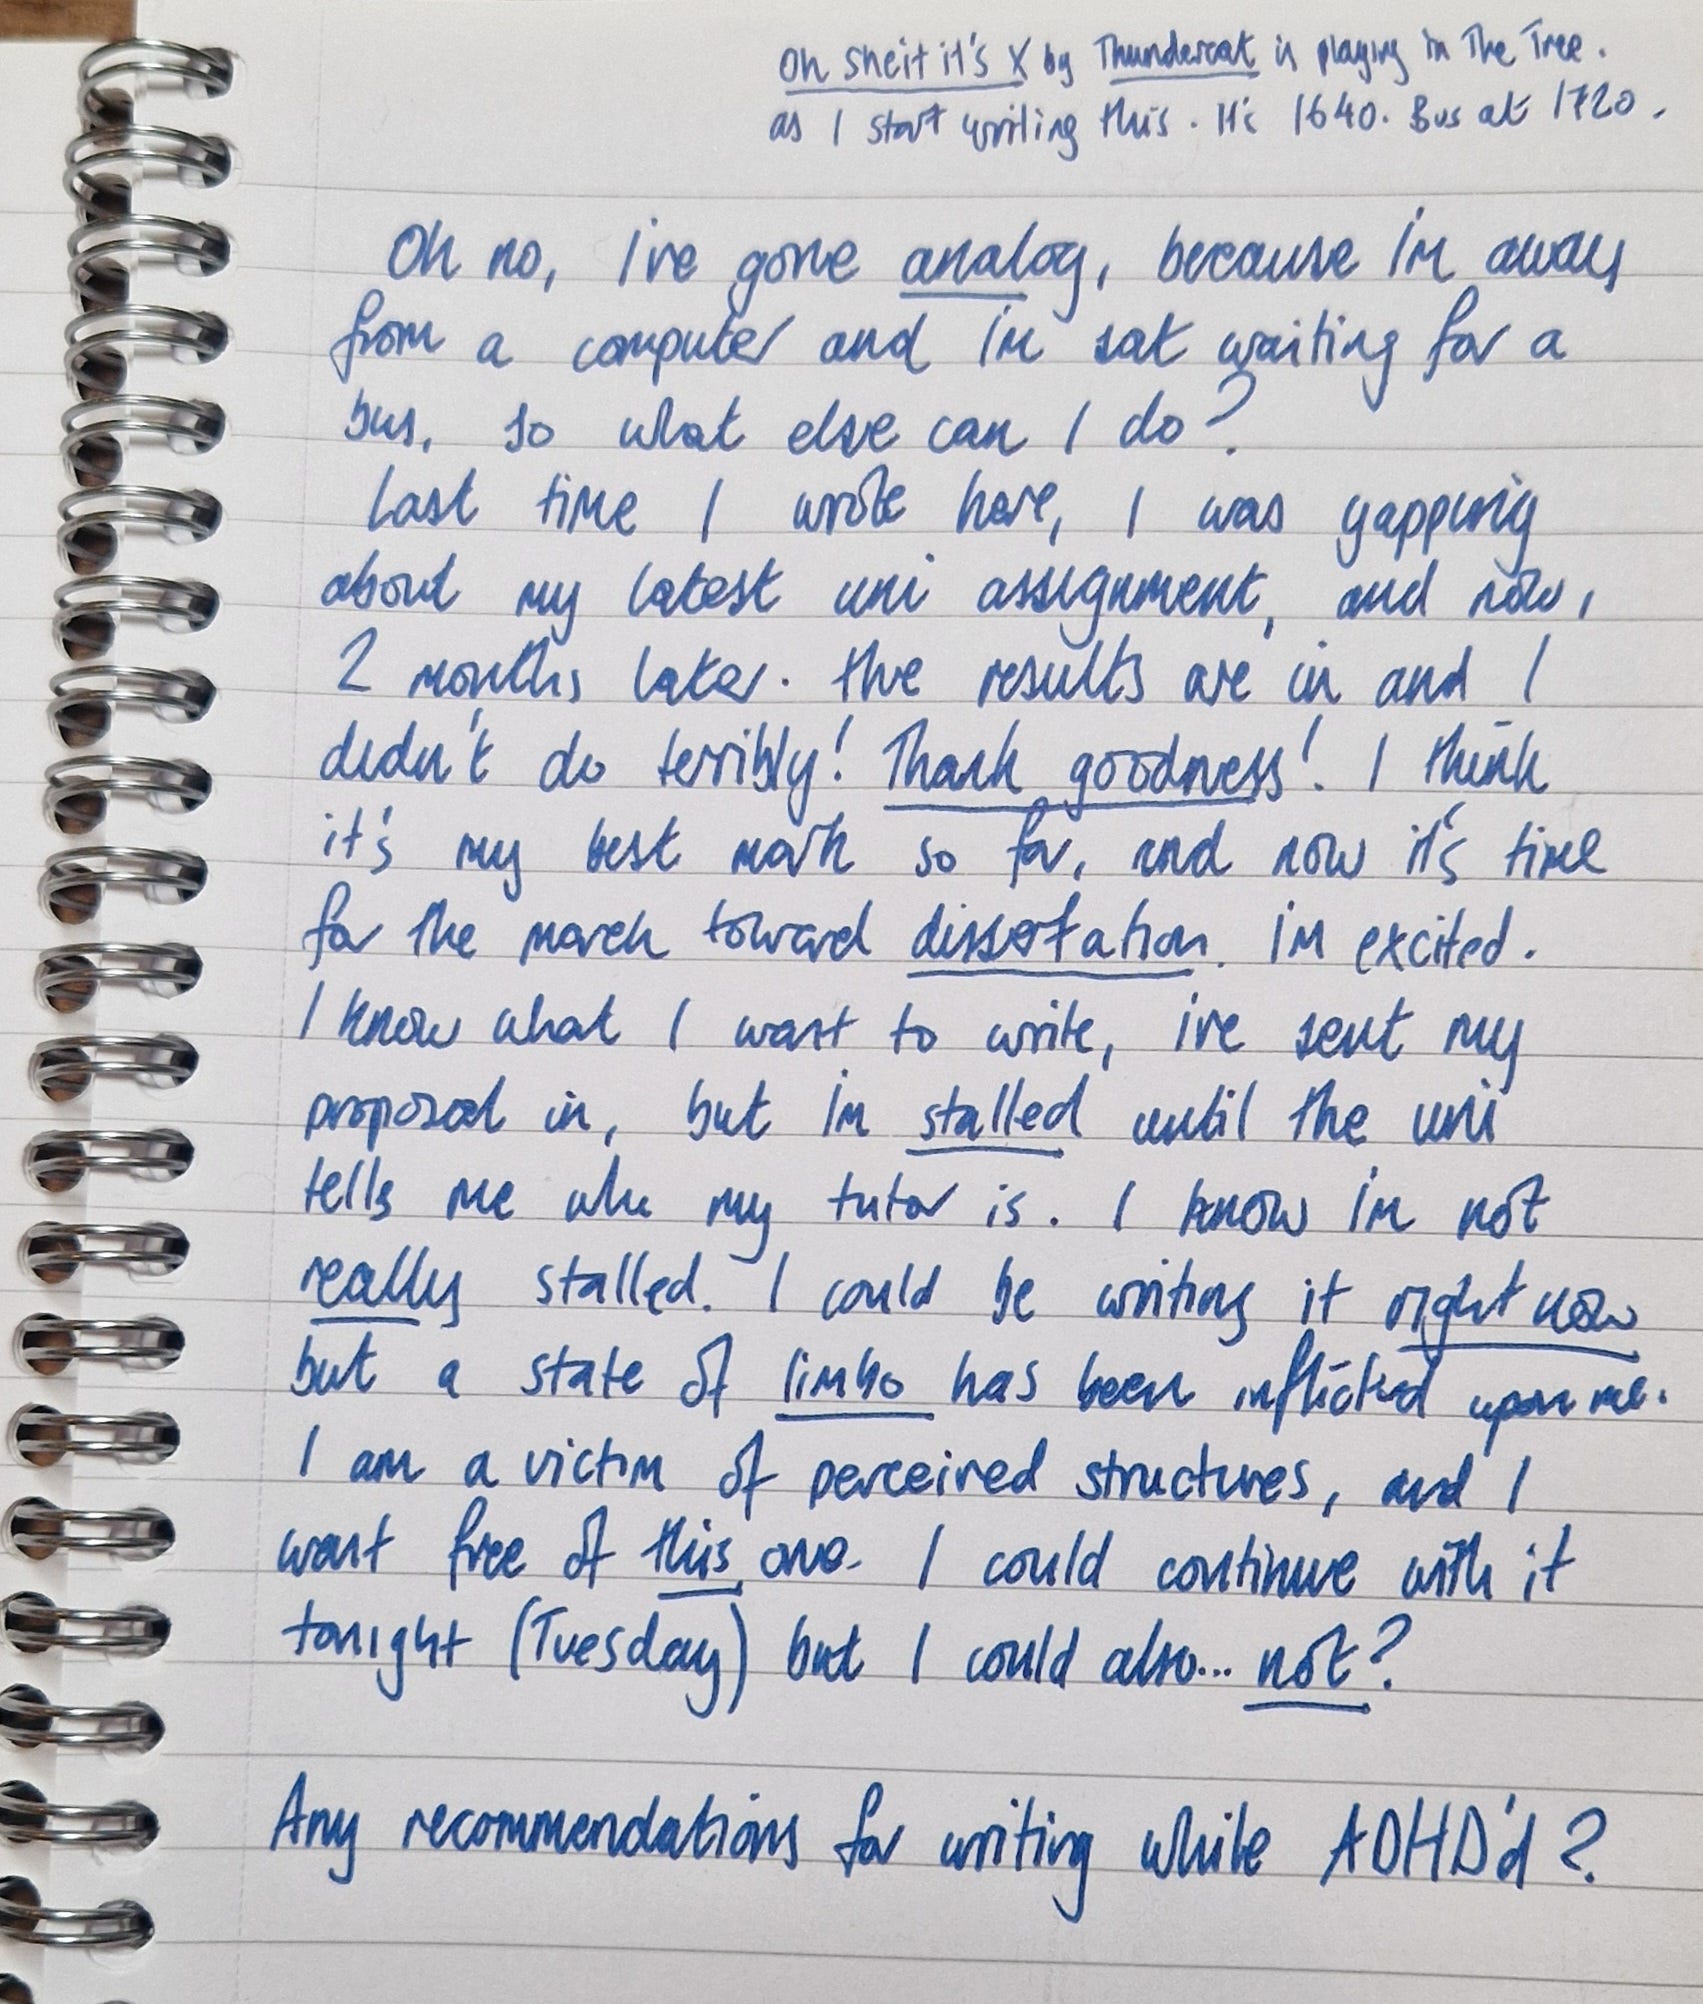 Oh sheit it's X by Thundercat is playing in The Tree.
as I start writing this. It's 1640. Bus at 1720.
Oh no, I've gone analog, because I'm away
from a computer and I'm sat waiting for a
bus, so what else can I do?
Last time I wrote here, I was yapping
about my latest uni assignment, and now,
2 months later. the results are in and I
didn't do terribly! Thank goodness! I think
it's my best mark so far, and now it's time
for the march toward dissertation. I'm excited.
I know what I want to write, I've sent my
proposal in, but I'm stalled until the uni
tells me who my tutor is. I know I'm not
really stalled. I could be writing it right now
but a state of limbo has been inflicted upon me.
I am a victim of perceived structures, and I
want free of this one. I could continue with it
tonight (Tuesday) but I could also... not?
Any recommendations for writing while ADHD'd?